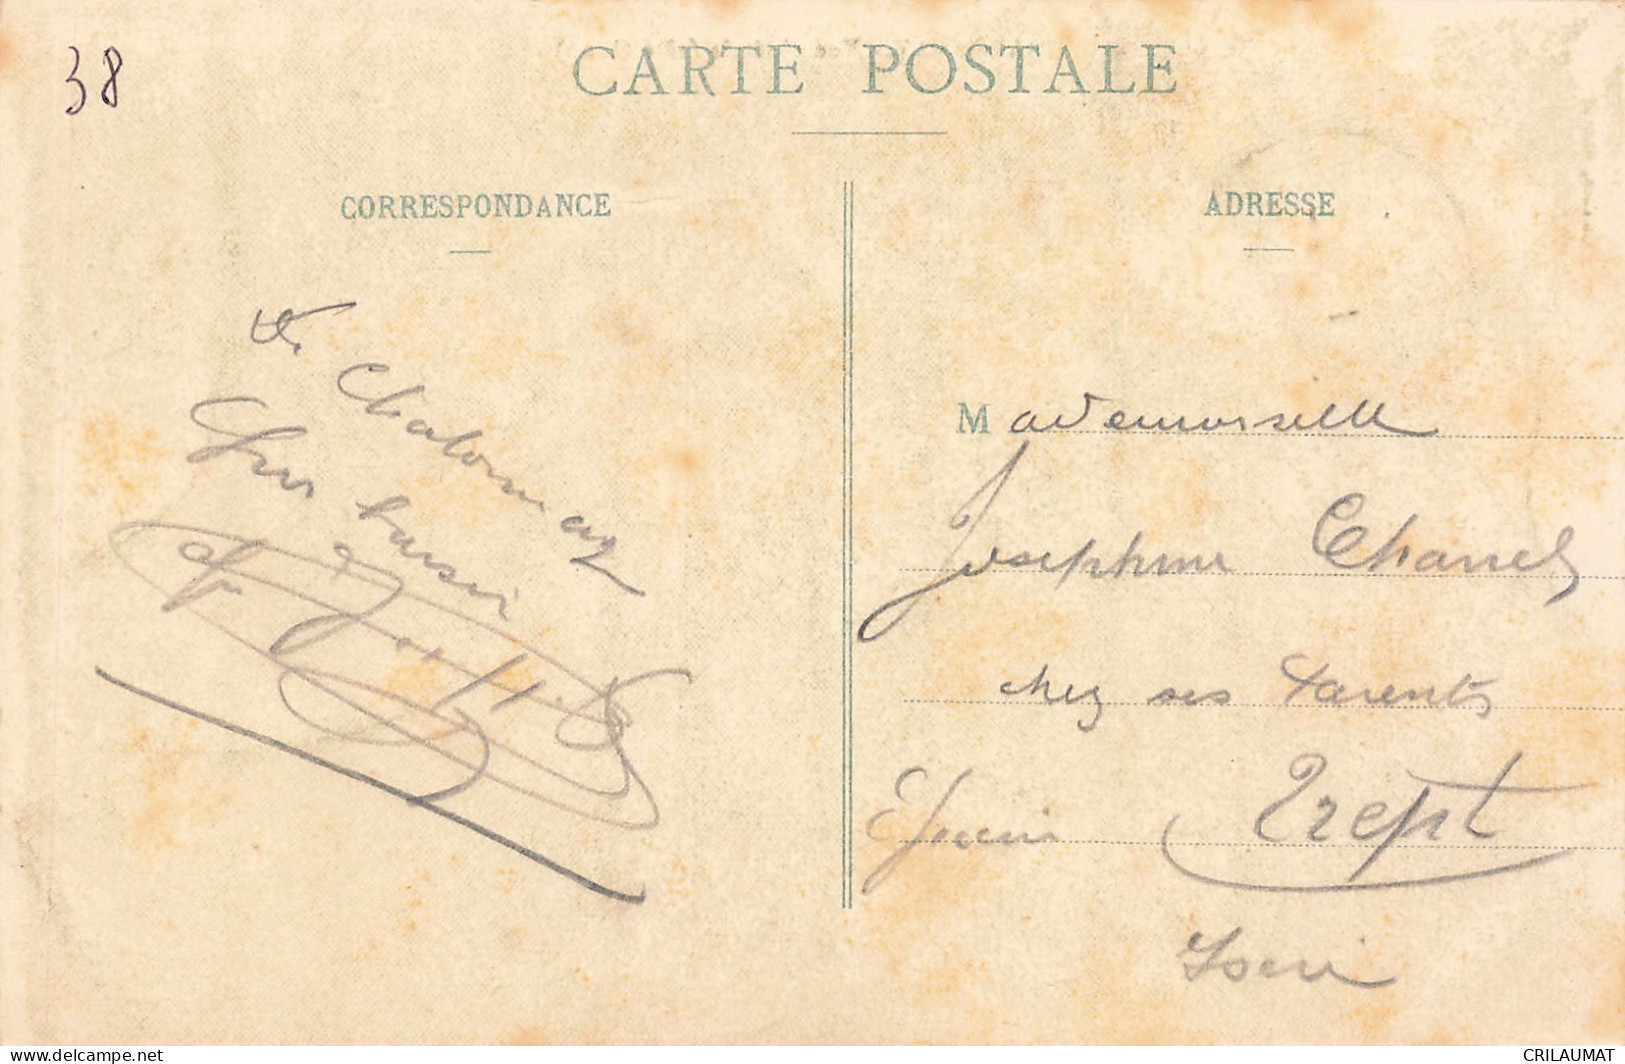 38
CARTE POSTALE
CORRESPONDANCE
ADRESSE
De Chalonnay
Gros baiser
Mademoiselle
Josephine Chanel
chez ses Parents
Trept
Isère
www.delcampe.net
CRILAUMAT